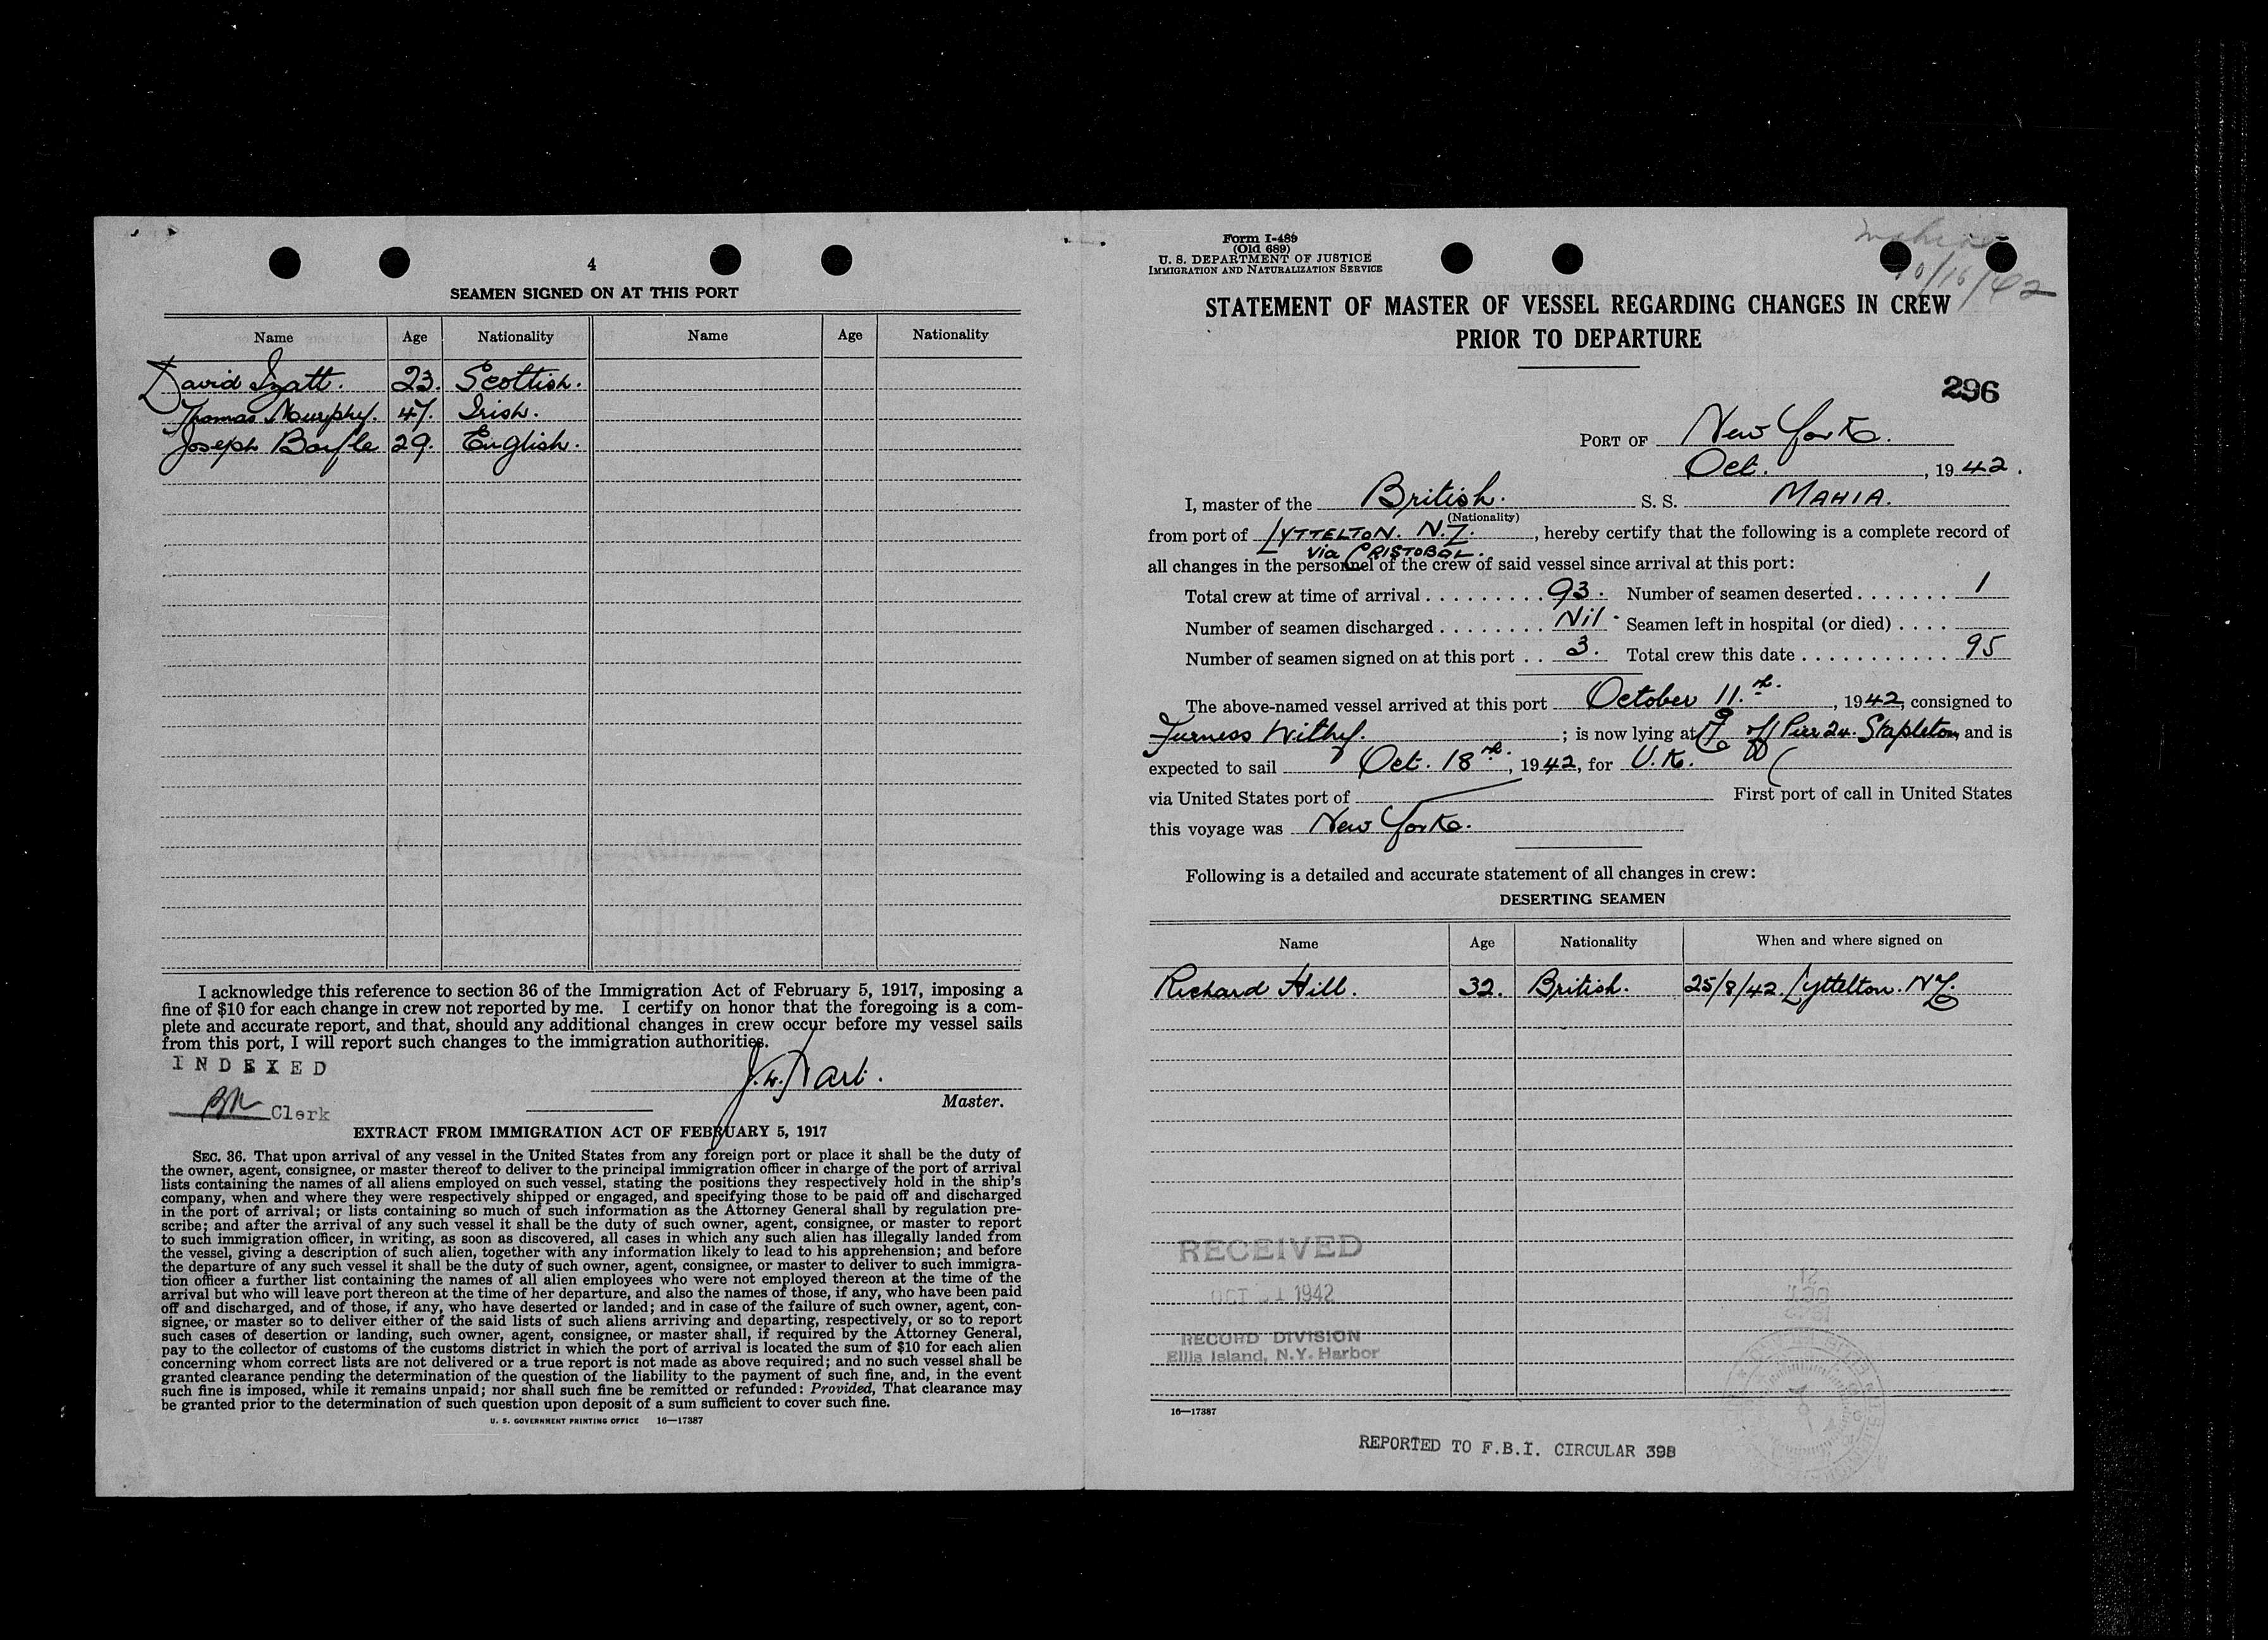 4
SEAMEN SIGNED ON AT THIS PORT
Name Age Nationality Name Age Nationality
David Izatt. 23. Scottish.
Thomas Murphy. 47. Irish.
Joseph Boyle 29. English.
I acknowledge this reference to section 36 of the Immigration Act of February 5, 1917, imposing a
fine of $10 for each change in crew not reported by me. I certify on honor that the foregoing is a com-
plete and accurate report, and that, should any additional changes in crew occur before my vessel sails
from this port, I will report such changes to the immigration authorities.
INDEXED
J.W. Hart.
Master.
Clerk
EXTRACT FROM IMMIGRATION ACT OF FEBRUARY 5, 1917
SEC. 36. That upon arrival of any vessel in the United States from any foreign port or place it shall be the duty of
the owner, agent, consignee, or master thereof to deliver to the principal immigration officer in charge of the port of arrival
lists containing the names of all aliens employed on such vessel, stating the positions they respectively hold in the ship's
company, when and where they were respectively shipped or engaged, and specifying those to be paid off and discharged
in the port of arrival; or lists containing so much of such information as the Attorney General shall by regulation pre-
scribe; and after the arrival of any such vessel it shall be the duty of such owner, agent, consignee, or master to report
to such immigration officer, in writing, as soon as discovered, all cases in which any such alien has illegally landed from
the vessel, giving a description of such alien, together with any information likely to lead to his apprehension; and before
the departure of any such vessel it shall be the duty of such owner, agent, consignee, or master to deliver to such immigra-
tion officer a further list containing the names of all alien employees who were not employed thereon at the time of the
arrival but who will leave port thereon at the time of her departure, and also the names of those, if any, who have been paid
off and discharged, and of those, if any, who have deserted or landed; and in case of the failure of such owner, agent, con-
signee, or master so to deliver either of the said lists of such aliens arriving and departing, respectively, or so to report
such cases of desertion or landing, such owner, agent, consignee, or master shall, if required by the Attorney General,
pay to the collector of customs of the customs district in which the port of arrival is located the sum of $10 for each alien
concerning whom correct lists are not delivered or a true report is not made as above required; and no such vessel shall be
granted clearance pending the determination of the question of the liability to the payment of such fine, and, in the event
such fine is imposed, while it remains unpaid; nor shall such fine be remitted or refunded: Provided, That clearance may
be granted prior to the determination of such question upon deposit of a sum sufficient to cover such fine.
U. S. GOVERNMENT PRINTING OFFICE 16—17387
Form I-489
(Old 689)
U. S. DEPARTMENT OF JUSTICE
IMMIGRATION AND NATURALIZATION SERVICE
10/16/42
STATEMENT OF MASTER OF VESSEL REGARDING CHANGES IN CREW
PRIOR TO DEPARTURE
296
PORT OF New York.
Oct. , 1942.
I, master of the British. S. S. MAHIA.
(Nationality)
from port of LYTTELTON. N.Z. , hereby certify that the following is a complete record of
via CRISTOBAL.
all changes in the personnel of the crew of said vessel since arrival at this port:
Total crew at time of arrival . . . . . . . . . 93. Number of seamen deserted . . . . . . . 1
Number of seamen discharged . . . . . . . . Nil. Seamen left in hospital (or died) . . . .
Number of seamen signed on at this port . . 3. Total crew this date . . . . . . . . . . . . 95
The above-named vessel arrived at this port October 11.th. , 1942, consigned to
Furness Withy. ; is now lying at off Pier 24. Stapleton, and is
expected to sail Oct. 18th. , 1942, for U.K.
via United States port of First port of call in United States
this voyage was New York.
Following is a detailed and accurate statement of all changes in crew:
DESERTING SEAMEN
Name Age Nationality When and where signed on
Richard Hill. 32. British. 25/8/42. Lyttelton. NZ.
RECEIVED
OCT 21 1942
RECORD DIVISION
Ellis Island, N.Y. Harbor
16—17387
REPORTED TO F.B.I. CIRCULAR 398